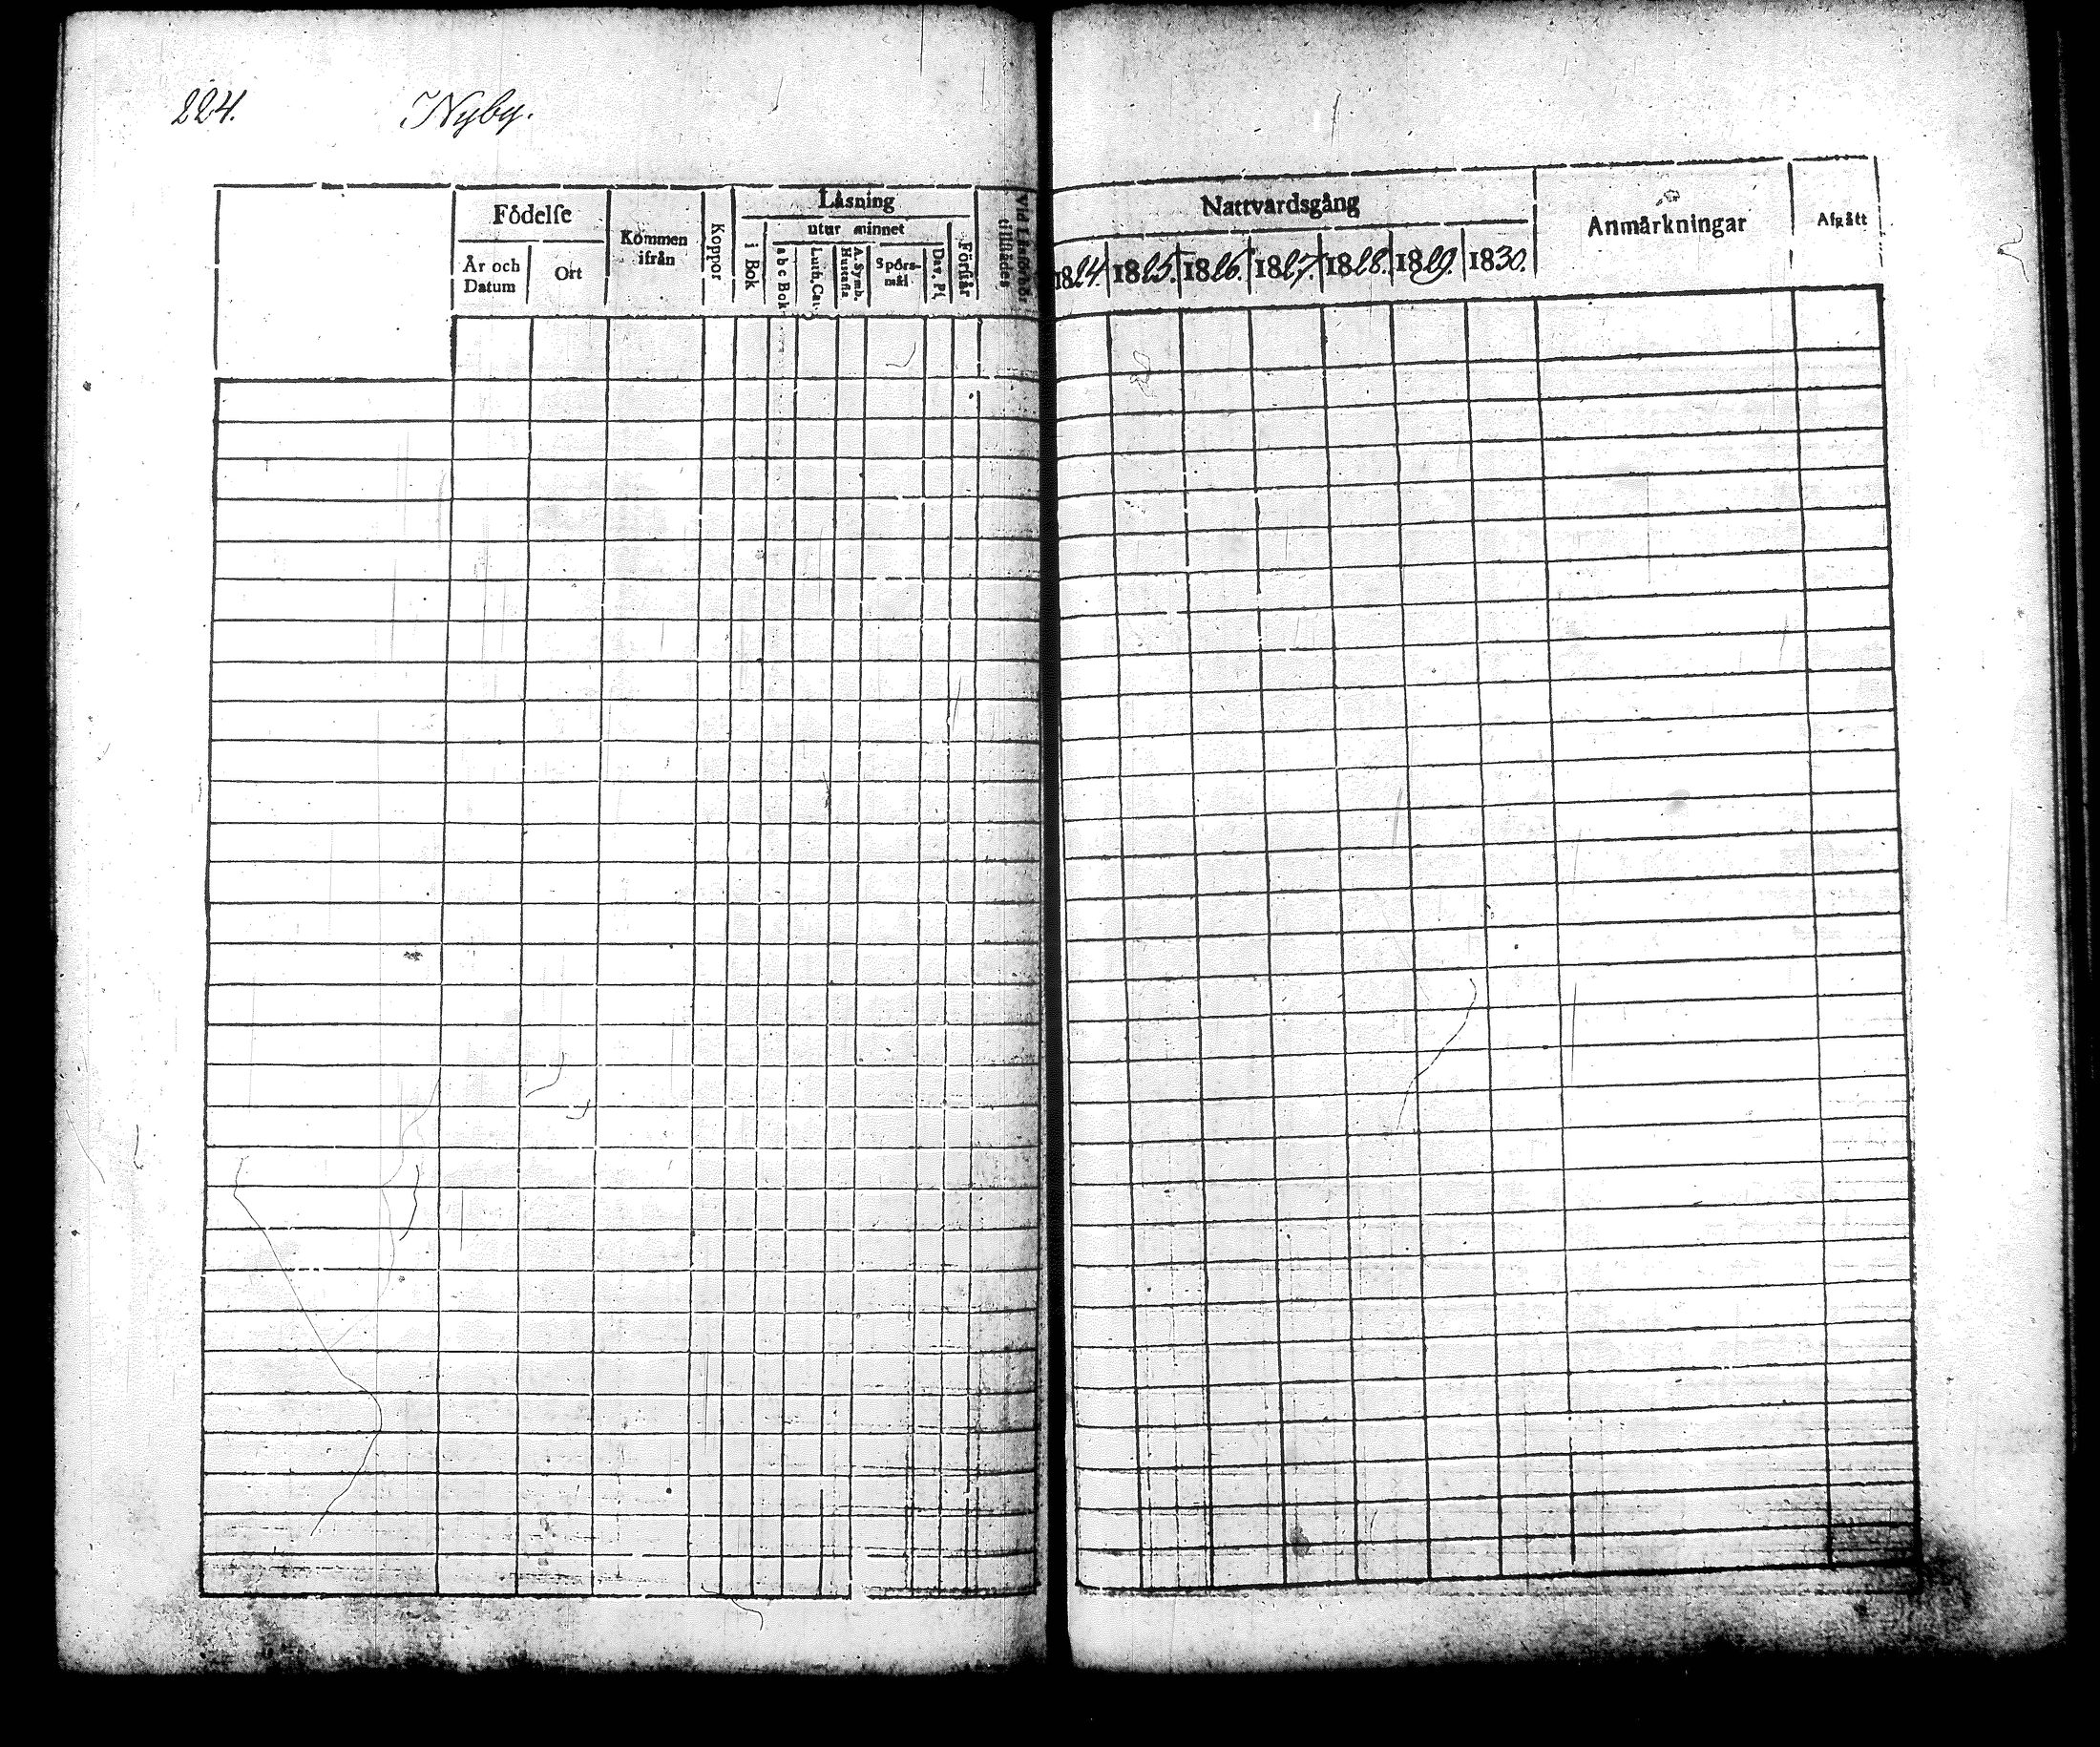 224. Nyby.
Födelse
År och Datum
Ort
Kommen ifrån
Koppor
Läsning
i Bok
utur minnet
a b c Bok
Luth. Cat.
A. Symb. Hustafla
Spörsmål
Dav. Ps.
Förstår
Vid Läsförhör tillstädes
Nattvardsgång
1824. 1825. 1826. 1827. 1828. 1829. 1830.
Anmärkningar
Afgått